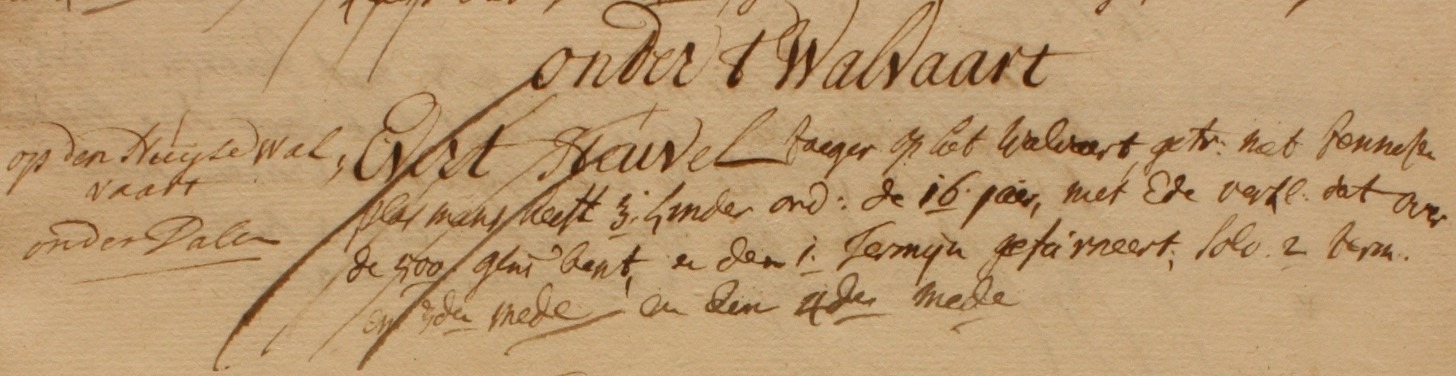 onder t Walvaart
op den Huijse Wal
vaart
onder Dalen
Evert Heuvel taeger op het Walvaart, getr: met
heeft 3. kinder ond: de 16. jaer, met Ede verkl. dat over
de 500. glns bent, en den 1. Termijn gefurneert, solv. 2 term.
en 3den mede en den 4den mede